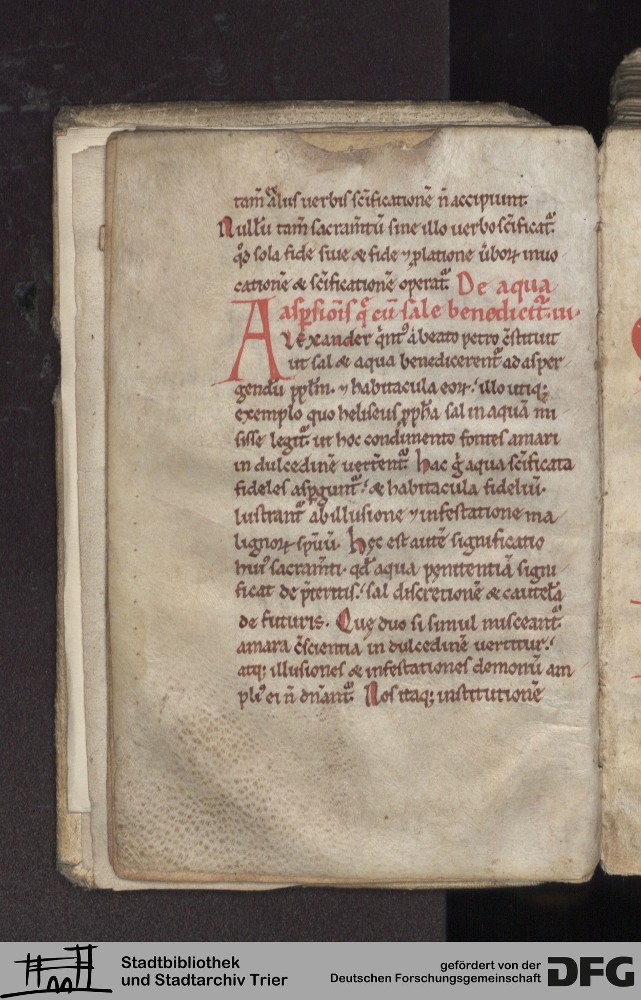 tam̄ alus uerbis sc̄ificationē n̄ accipiunt.
Nullū tam̄ sacram̄tū sine illo uerbo sc̄ificat᷑.
qd̓ sola fide siue & fide ⁊ ꝓlatione ūboꝝ inuo
catione & sc̄ificatione operat᷑. De aqua
aspersiōis q̄ cū sale benedicit᷑. iii.
Alexander q̇nt᷒ a beato petro c̄stituit
ut sal & aqua benedicerent᷑ ad asper
gendū ppl̄m. ⁊ habitacula eoꝝ. illo utiq;
exemplo quo heliseus ꝓph̄a sal in aquā mi
sisse legit᷑. ut hoc condimento fontes amari
in dulcedinē uerterent᷑. hac g̊ aqua sc̄ificata
fideles aspergunt᷑. & habitacula fideliū.
lustrant᷑ ab illusione ⁊ infestatione ma
lignoꝝ sp̄uū. hęc est autē significatio
hui᷒ sacram̄ti. qd̓ aqua penitentiā signi
ficat de p̄teritis. sal discretionē & cautelā
de futuris. Que duo si simul misceant᷑
amara c̄scientia in dulcedinē uertitur.
atq; illusiones & infestationes demonū am
pli᷒ ei n̄ dn̄ant᷑. Nos itaq; institutionē
Stadtbibliothek
und Stadtarchiv Trier
gefördert von der
Deutschen Forschungsgemeinschaft
DFG